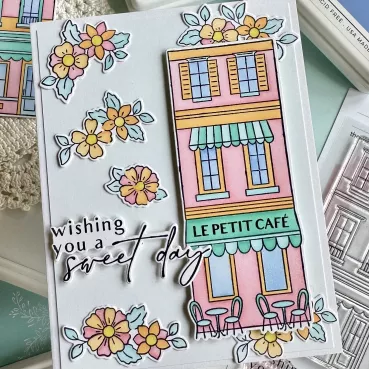 ACID FREE. USA MADE
LE PETIT CAFÉ
wishing
you a
sweet day